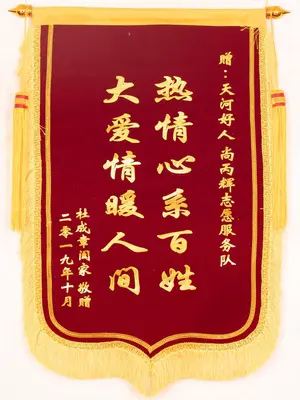 赠：天河好人 尚丙辉志愿服务队
热情心系百姓
大爱情暖人间
杜成章阖家 敬赠
二零一九年十月